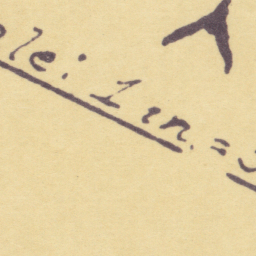 ole: 1 in. =